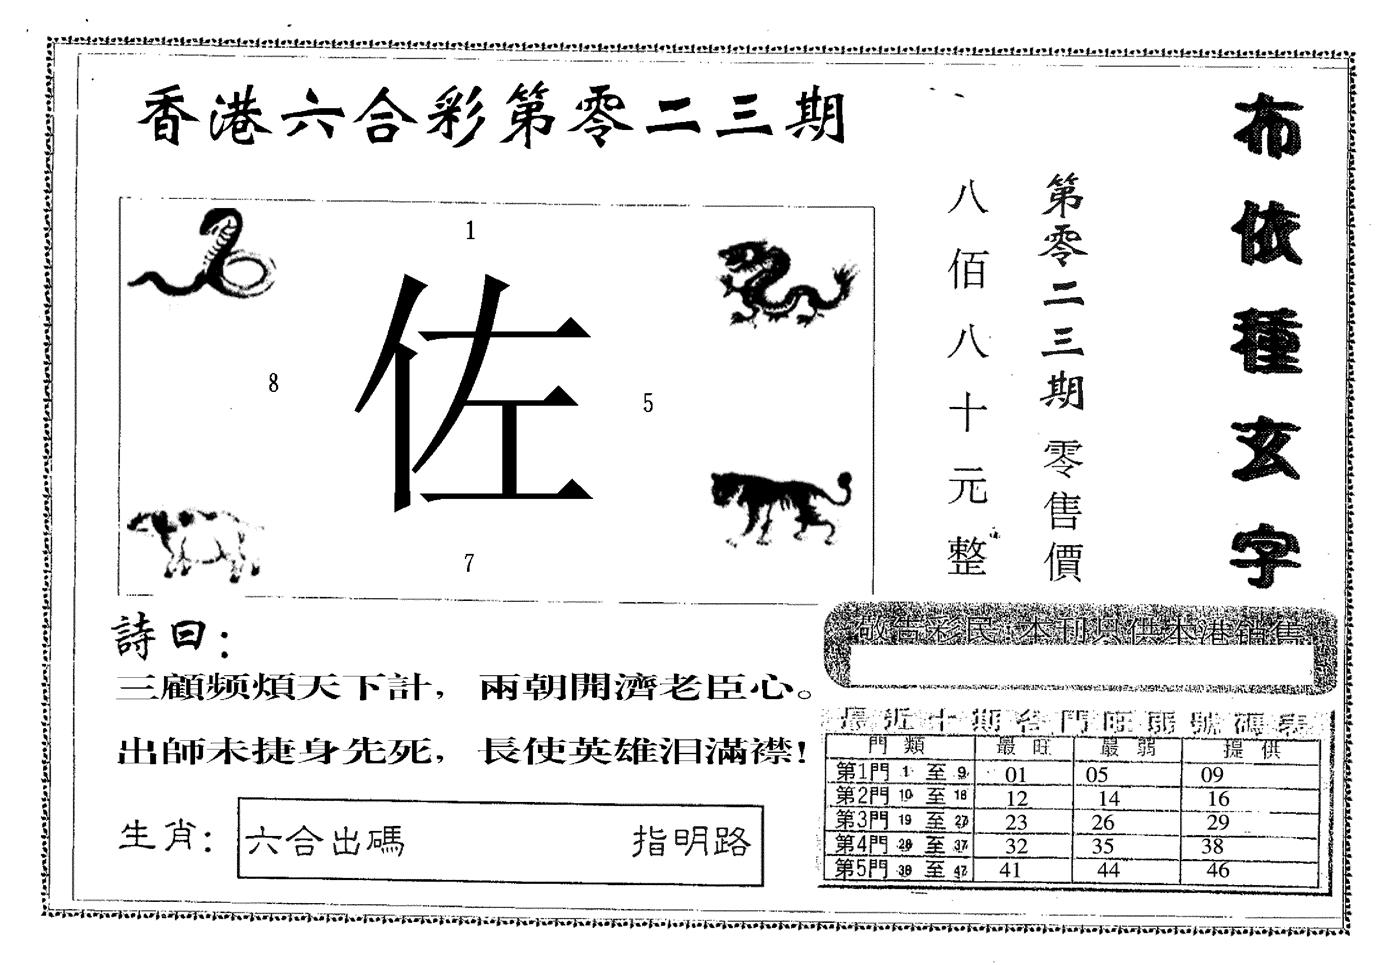 香港六合彩第零二三期
布依種玄字
第零二三期零售價
八佰八十元整
1
佐
8
5
7
詩曰：
三顧频煩天下計，兩朝開濟老臣心。
出師未捷身先死，長使英雄泪滿襟！
生肖：
六合出碼 指明路
敬告彩民：本刊只供本港銷售
最近十期各門旺弱號碼表
門類 最旺 最弱 提供
第1門 1 至 9 01 05 09
第2門 10 至 18 12 14 16
第3門 19 至 27 23 26 29
第4門 28 至 37 32 35 38
第5門 38 至 47 41 44 46